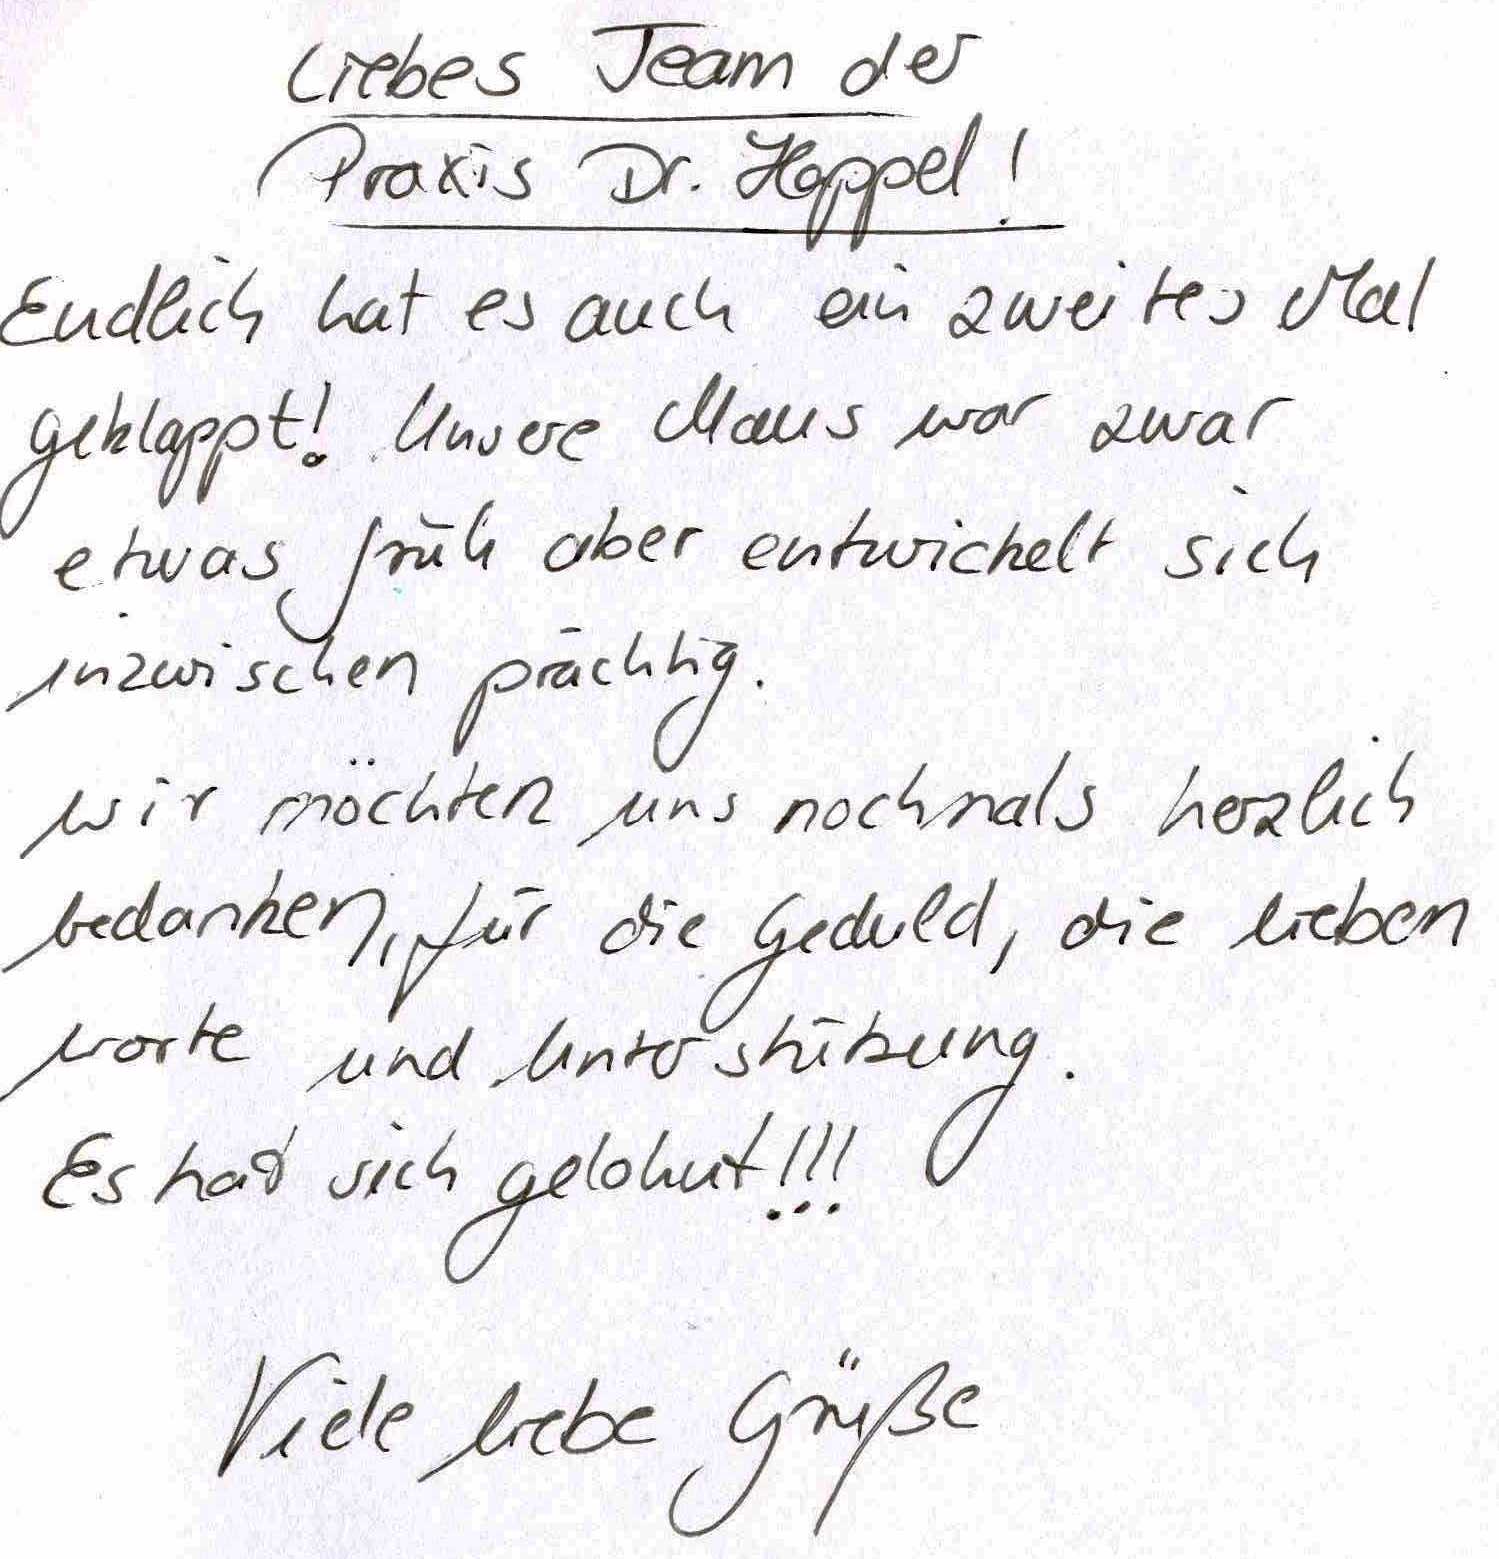 Liebes Team der
Praxis Dr. Hoppel!
Endlich hat es auch ein zweites Mal
geklappt! Unsere Maus war zwar
etwas früh aber entwickelt sich
inzwischen prächtig.
Wir möchten uns nochmals herzlich
bedanken, für die Geduld, die lieben
Worte und Unterstützung.
Es hat sich gelohnt!!!
Viele liebe Grüße